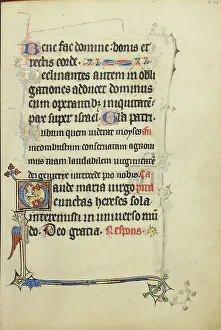 Bene fac domine: bonis et
rectis corde.
Declinantes autem in obli
gationes adducet dominus
cum operantibus iniquitatem
pax super israel. Gloria patri.
Rubum quem viderat moyses
incombustum conservatam agnovi
mus tuam laudabilem virginitatem
dei genetrix intercede pro nobis.
aude maria virgo
cunctas hereses sola
interemisti in universo mu
do. Deo gratias. Respons.